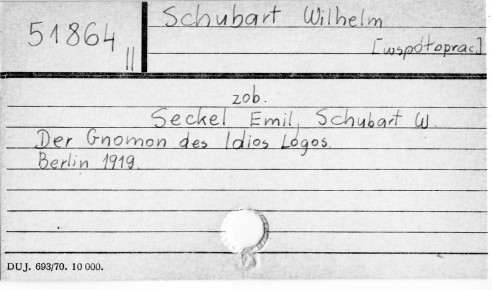 51864
II
Schubart Wilhelm
[współoprac]
zob.
Seckel Emil, Schubart W.
Der Gnomon des Idios Logos.
Berlin 1919.
DUJ. 693/70. 10 000.